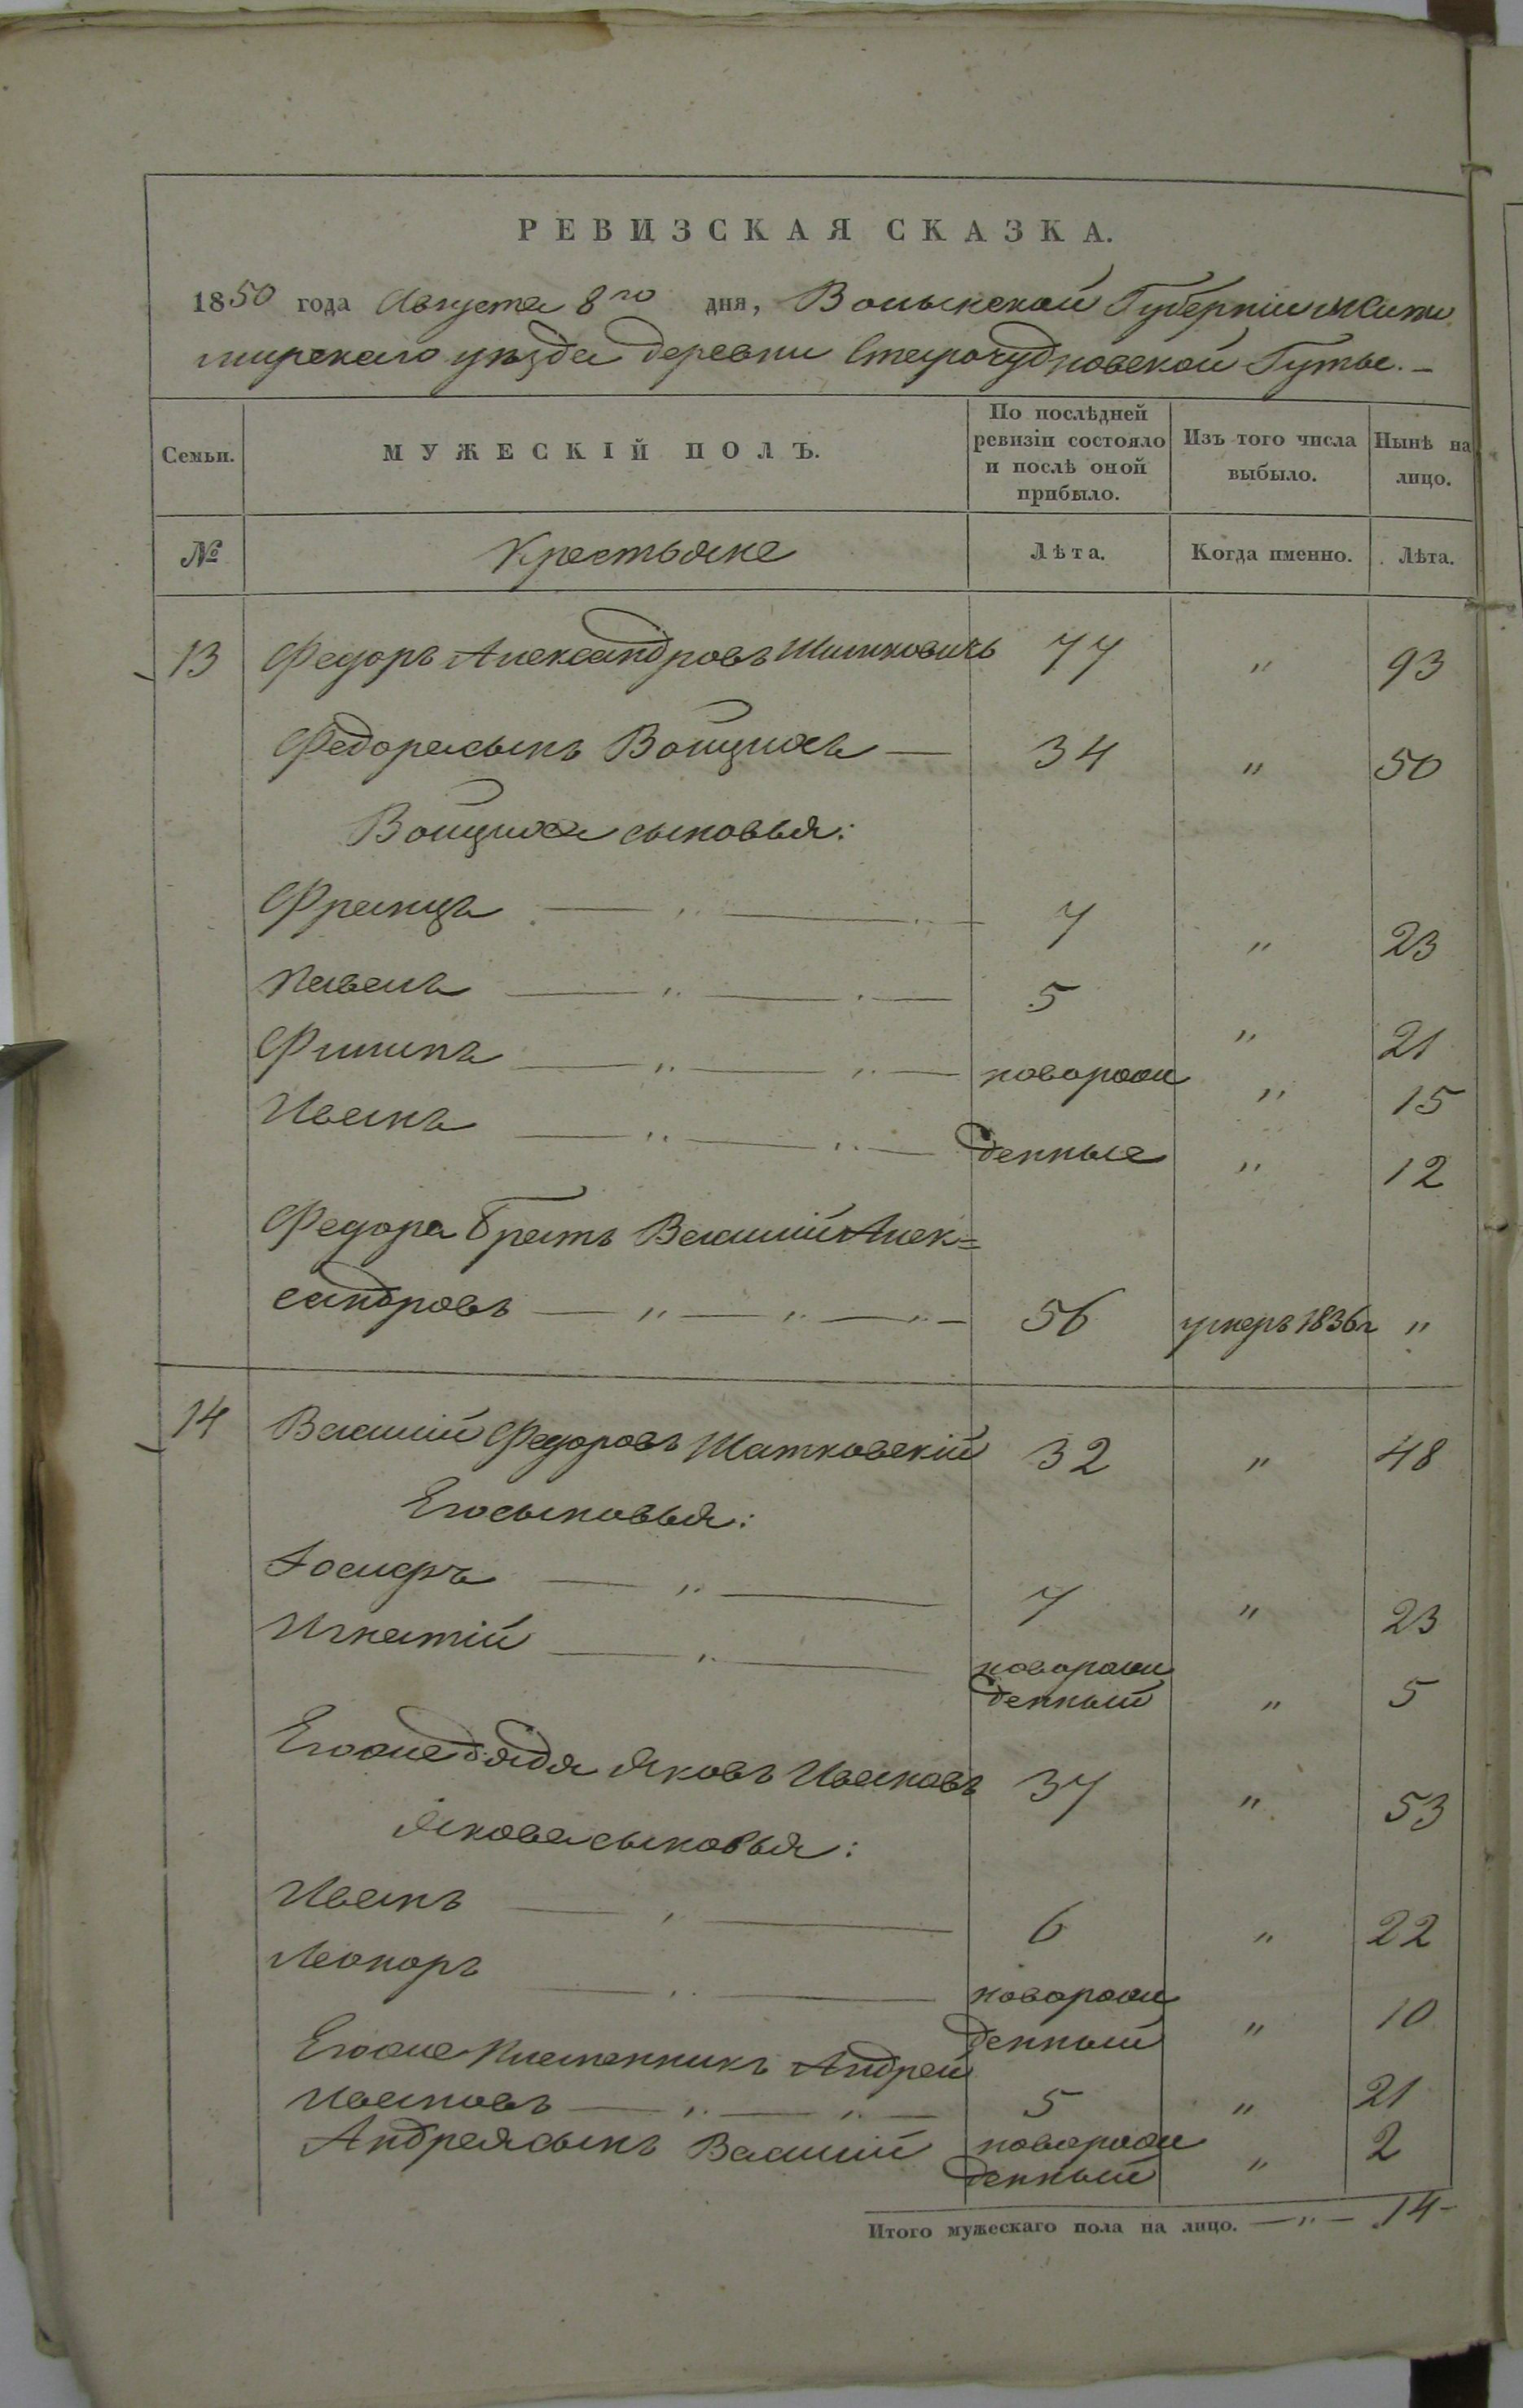 РЕВИЗСКАЯ СКАЗКА.
1850 года Августа 8го дня, Волынской Губернiи Жито
мирскаго уѣзда деревни Старочудновской Гутѣ. –
Семьи.
МУЖЕСКІЙ ПОЛЪ.
По послѣдней
ревизіи состояло
и послѣ оной
прибыло.
Изъ того числа
выбыло.
Нынѣ на
лицо.
№ Крестьяне Лѣта. Когда именно. Лѣта.
13 Федоръ Александровъ Шитковичъ 77 " 93
Федора сынъ Войцихъ — 34 " 50
Войциха сыновья:
Францъ — " — 7 " 23
Павелъ — " — " — 5 " 21
Филипъ — " — " — новорож " 15
Иванъ — " — " — денные " 12
Федора братъ Василій Алек=
сандровъ — " — " — " — 56 умеръ 1836г "
14 Василій Федоровъ Шатковскій 32 " 48
Его сыновья:
Іосифъ — " — 7 " 23
Игнатій — " — новорож
денный " 5
Его же дядя Яковъ Ивановъ 37 " 53
Якова сыновья:
Иванъ — " — 6 " 22
Леоноръ — " — новорож
денный " 10
Его же племенникъ Андрей
Ивановъ — " — " — 5 " 21
Андрея сынъ Василій новорож
денный " 2
Итого мужескаго пола на лицо. — " — 14 –